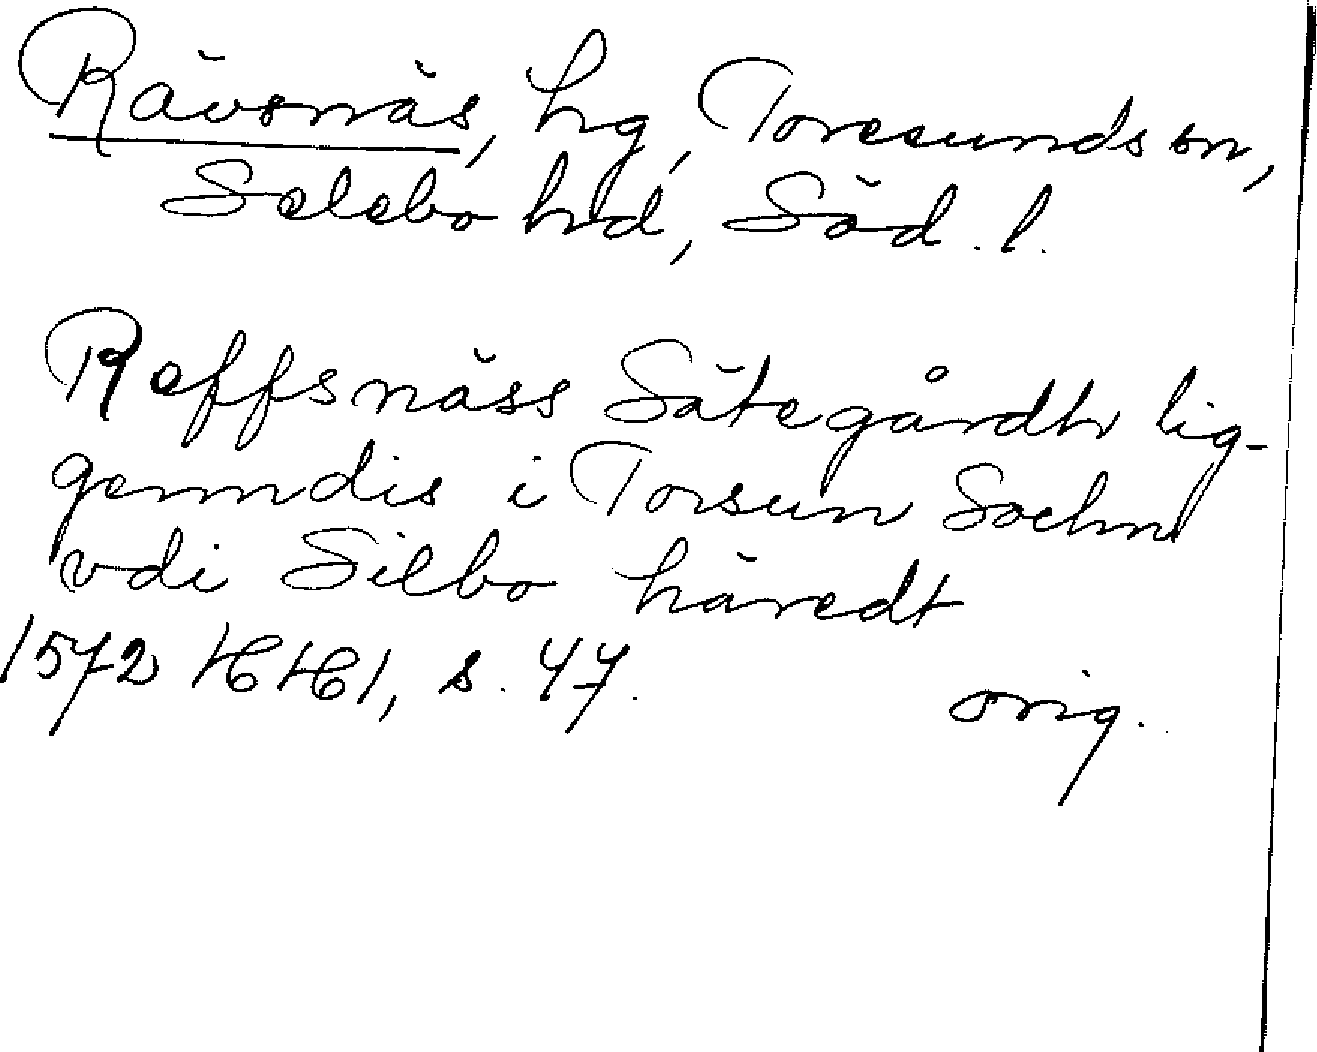 Rävsnäs, hg, Toresunds sn,
Selebo hd, Söd. l.
Reffsnäss Sätegårdh lig-
genndis i Torsun Sochn
vdi Silbo häredt
1572 HH1, s. 47.
orig.